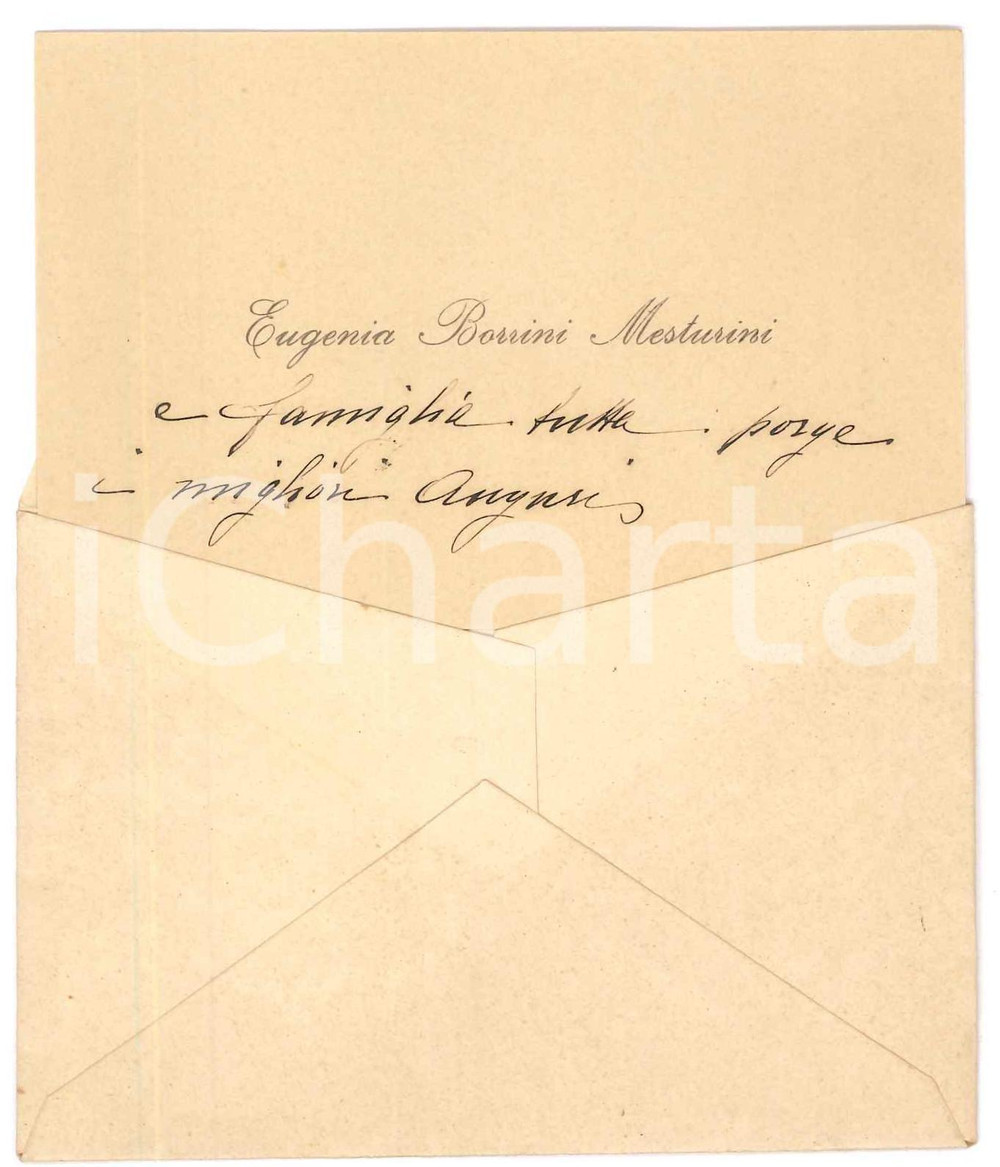 Eugenia Borrini Mesturini
e famiglia tutta porge
i migliori Auguri
iCharta